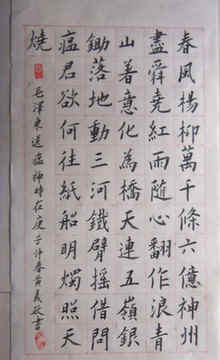 春風楊柳萬千條六億神州
盡舜堯紅雨隨心翻作浪青
山着意化為橋天連五嶺銀
鋤落地動三河鐵臂搖借問
瘟君欲何往紙船明燭照天
燒
毛澤東送瘟神時在庚子仲春義敏書